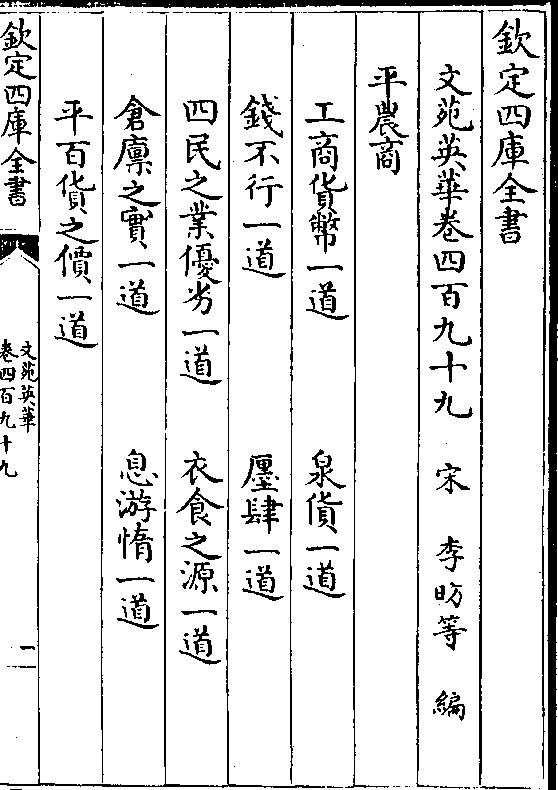 欽定四庫全書
文苑英華卷四百九十九 宋 李昉等 編
平農商
工商貨幣一道 泉貨一道
錢不行一道 廛肆一道
四民之業優劣一道 衣食之源一道
倉廩之實一道 息游惰一道
平百貨之價一道
欽定四庫全書
文苑英華
卷四百九十九
一